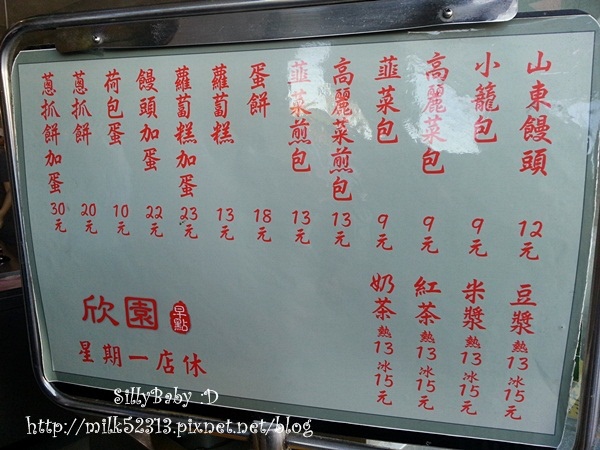 山東饅頭 12元
小籠包 9元
高麗菜包 9元
韮菜包 9元
高麗菜煎包 13元
韮菜煎包 13元
蛋餅 18元
蘿蔔糕 13元
蘿蔔糕加蛋 23元
饅頭加蛋 22元
荷包蛋 10元
蔥抓餅 20元
蔥抓餅加蛋 30元
豆漿 熱13 冰15元
米漿 熱13 冰15元
紅茶 熱13 冰15元
奶茶 熱13 冰15元
欣園 早點
星期一店休
SillyBaby :D
http://milk52313.pixnet.net/blog